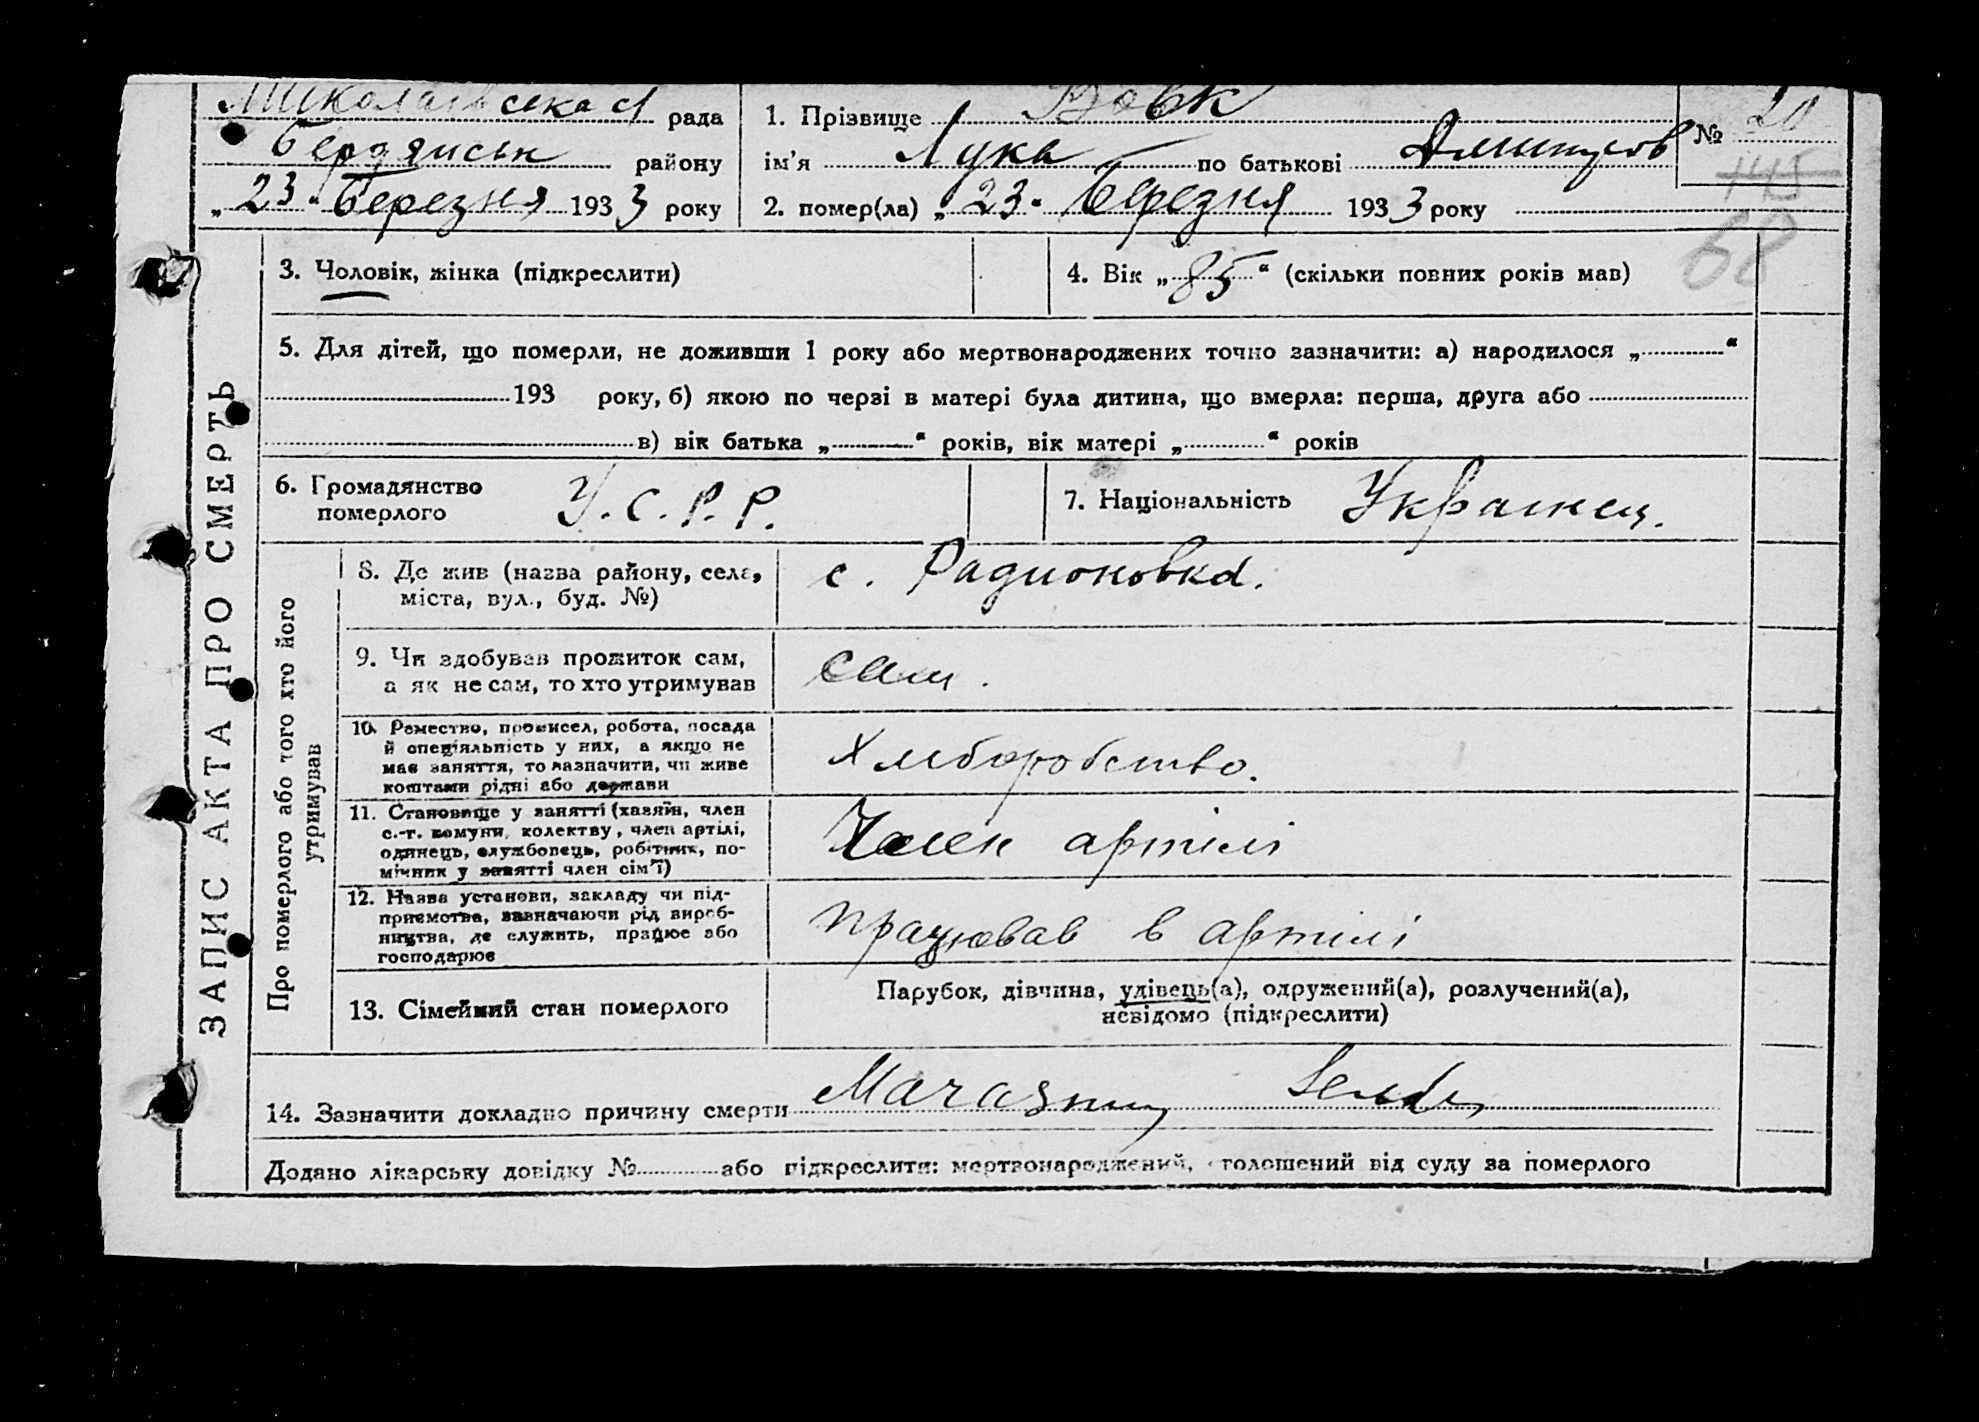 Миколаївська рада
Бердянськ району
„23“ Березня 1933 року
1. Прізвище Вовк
ім’я Лука по батькові
2. помер(ла) „23“ Березня 1933 року
№ 20
145
68
ЗАПИС АКТА ПРО СМЕРТЬ
3. Чоловік, жінка (підкреслити)
4. Вік „85“ (скільки повних років мав)
5. Для дітей, що померли, не доживши 1 року або мертвонароджених точно зазначити: а) народилося „ “
193 року, б) якою по черзі в матері була дитина, що вмерла: перша, друга або
в) вік батька „ “ років, вік матері „ “ років
6. Громадянство
померлого
У.С.Р.Р.
7. Національність Украинец.
Про померлого або того хто його
утримував
8. Де жив (назва району, села,
міста, вул., буд. №)
с. Радионовка.
9. Чи здобував прожиток сам,
а як не сам, то хто утримував
сам.
10. Ремество, промисел, робота, посада
й спеціяльність у них, а якщо не
має заняття, то зазначити, чи живе
коштами рідні або держави
Хлеборобство.
11. Становище у занятті (хазяїн, член
с.-г. комуни, колектву, член артілі,
одинець, службовець, робітник, по-
мічник у занятті член сім’ї)
Член артілі
12. Назва установи, закладу чи під-
приємства, зазначаючи рід вироб-
ництва, де служить, працює або
господарює
працював в артілі
13. Сімейний стан померлого
Парубок, дівчина, удівець(а), одружений(а), розлучений(а),
невідомо (підкреслити)
14. Зазначити докладно причину смерти
Додано лікарську довідку № або підкреслити: мертвонароджений, оголошений від суду за померлого